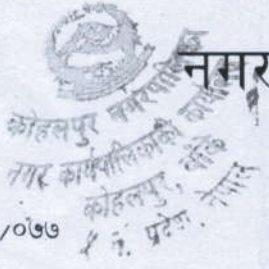 नगर
कोहलपुर नगरपालिका
नगर कार्यपालिकाको कार्यालय
कोहलपुर, बाँके
५ नं. प्रदेश, नेपाल
/०७७